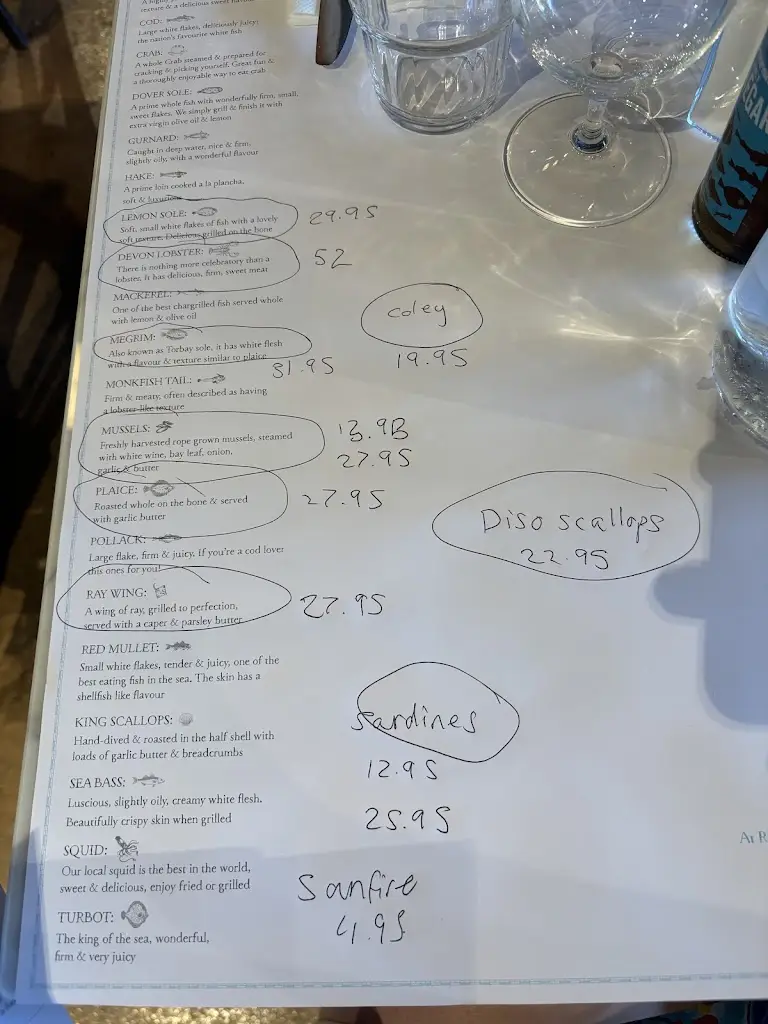 texture & a delicious sweet flavour
COD:
Large white flakes, deliciously juicy;
the nation's favourite white fish
CRAB:
A whole Crab steamed & prepared for
cracking & picking yourself. Great fun &
a thoroughly enjoyable way to eat crab
DOVER SOLE:
A prime whole fish with wonderfully firm, small,
sweet flakes. We simply grill & finish it with
extra virgin olive oil & lemon
GURNARD:
Caught in deep water, nice & firm,
slightly oily, with a wonderful flavour
HAKE:
A prime loin cooked a la plancha,
soft & luxurious
LEMON SOLE: 29.95
Soft, small white flakes of fish with a lovely
soft texture. Delicious grilled on the bone
DEVON LOBSTER: 52
There is nothing more celebratory than a
lobster. It has delicious, firm, sweet meat
MACKEREL:
One of the best chargrilled fish served whole
with lemon & olive oil
coley
19.95
MEGRIM:
Also known as Torbay sole, it has white flesh
with a flavour & texture similar to plaice
31.95
MONKFISH TAIL:
Firm & meaty, often described as having
a lobster-like texture
MUSSELS: 13.9B
Freshly harvested rope grown mussels, steamed
with white wine, bay leaf, onion, 27.95
garlic & butter
PLAICE: 27.95
Roasted whole on the bone & served
with garlic butter
Diso scallops
22.95
POLLACK:
Large flake, firm & juicy. If you're a cod lover
this ones for you!
RAY WING: 27.95
A wing of ray, grilled to perfection,
served with a caper & parsley butter
RED MULLET:
Small white flakes, tender & juicy, one of the
best eating fish in the sea. The skin has a
shellfish like flavour
KING SCALLOPS:
Hand-dived & roasted in the half shell with
loads of garlic butter & breadcrumbs
sardines
12.95
25.95
SEA BASS:
Luscious, slightly oily, creamy white flesh.
Beautifully crispy skin when grilled
SQUID:
Our local squid is the best in the world,
sweet & delicious, enjoy fried or grilled
Sanfire
4.95
TURBOT:
The king of the sea, wonderful,
firm & very juicy
At R